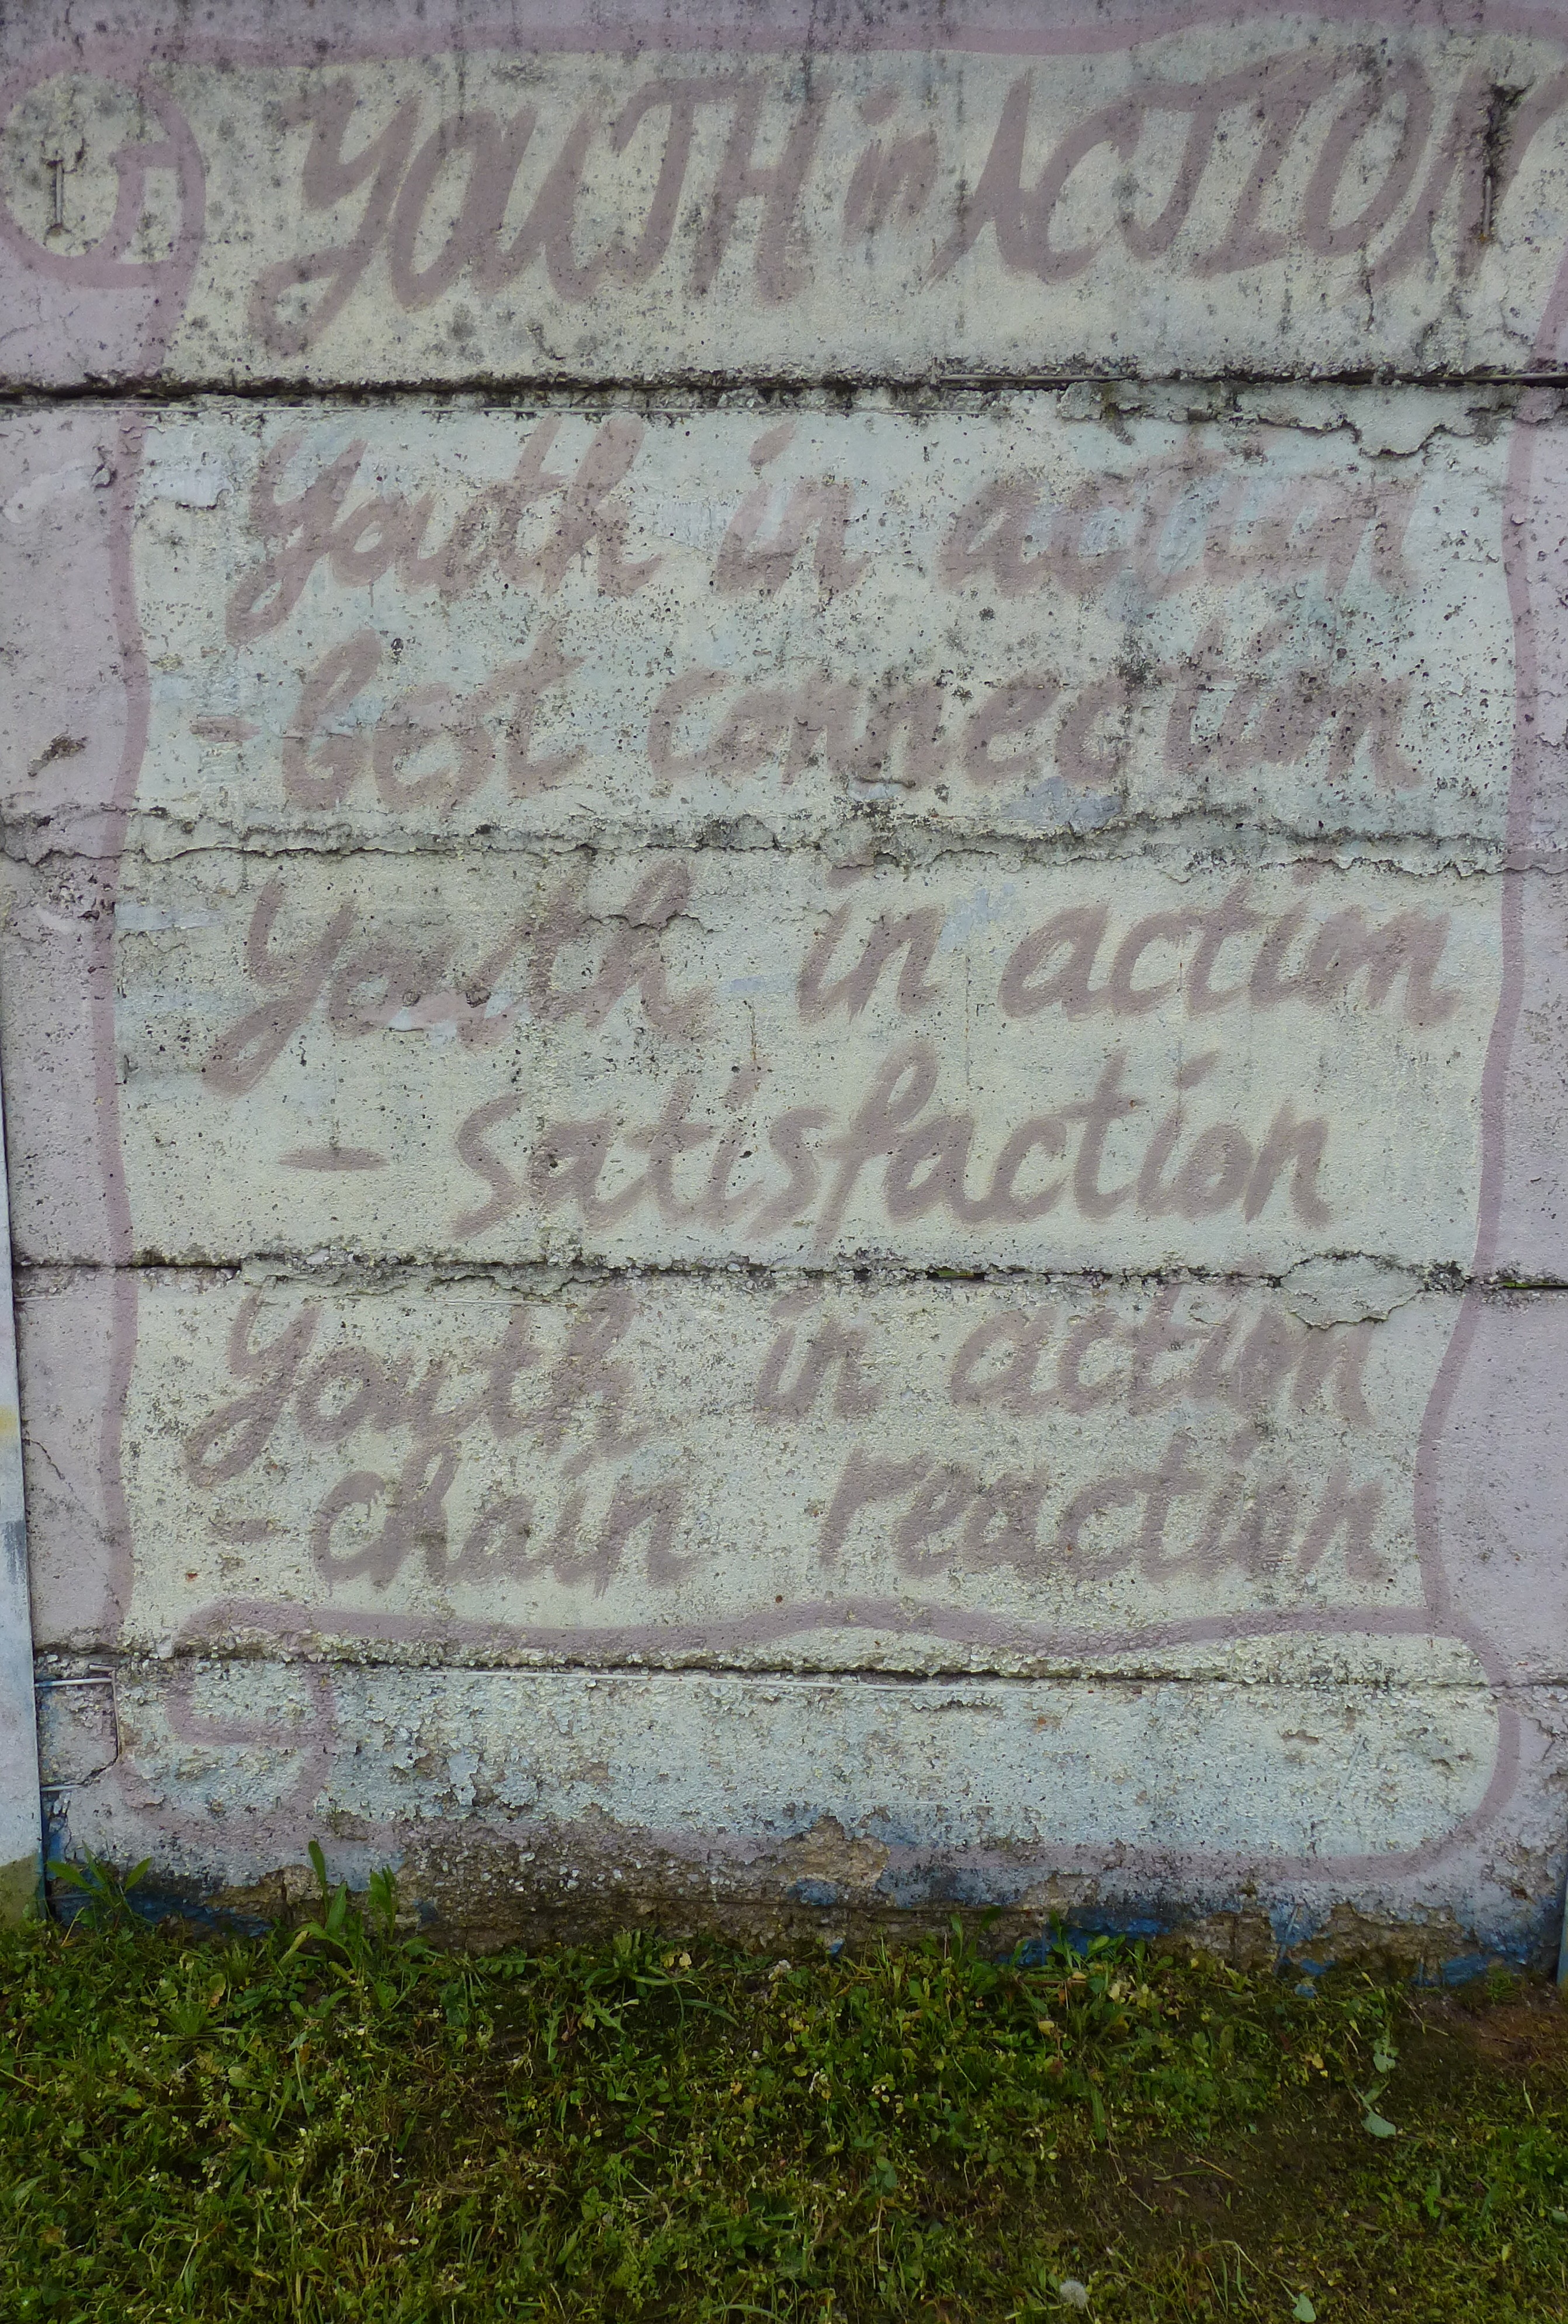 YOUTH in ACTION
Youth in action
- best connection
Youth in action
- satisfaction
Youth in action
- chain reaction